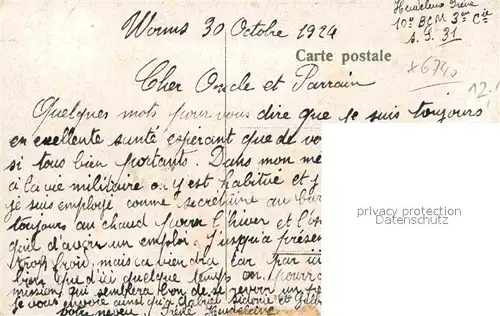 Worms 30 Octobre 1924
10e BCM 3e Cie
S.P. 31
Carte postale
*6740
12.
Cher Oncle et Parrain
Quelques mots pour vous dire que je suis toujours
en exellente santé espérant que de vo
si tous bien portants. Dans mon me
à la vie militaire on y est habitué et j
je suis employé comme secrétaire au bur
toujours au chaud pour l'hiver et l'on
d'avoir un emploi. J'usqu'à présen
trop froid, mais ca viendra car par ici
bien que d'ici quelque temps on pourra
mission qui semblera bon de se revoir un
je vous envoie ainsi qu'à Gabriel Sidonie et
votre neveu Irène
privacy protection
Datenschutz